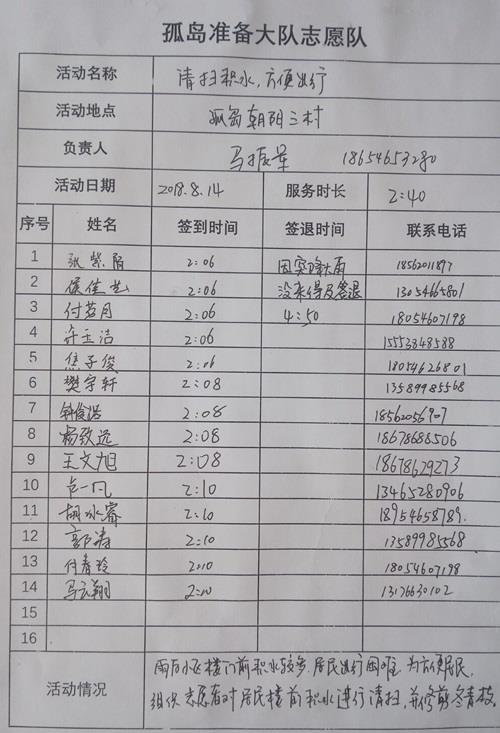 孤岛准备大队志愿队
活动名称 清扫积水,方便出行
活动地点 孤岛朝阳三村
负责人 马振军 18654653280
活动日期 2018.8.14 服务时长 2:40
序号 姓名 签到时间 签退时间 联系电话
1 张紫陌 2:06 因突降大雨 18562011877
2 侯佳艺 2:06 没来得及签退 13054665801
3 付若月 2:06 4:50 18054607198
4 许玉洁 2:06 15553848588
5 焦子俊 2:06 18054626801
6 樊宇轩 2:08 13589985568
7 2:08 18562056907
8 杨致远 2:08 18678688506
9 王文旭 2:08 18678629273
10 2:10 13465280906
11 胡冰睿 2:10 18954658789
12 郭涛 2:10 13589985568
13 付春玲 2:10 18054607198
14 马云翔 2:10 13176630102
15
16
活动情况
雨后小区楼门前积水较多,居民出行困难,为方便居民,
组织志愿者对居民楼前积水进行清扫,并修剪冬青枝。